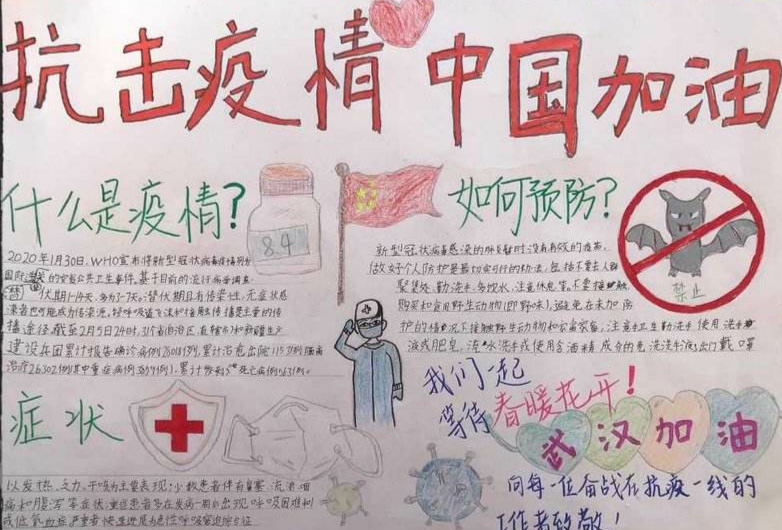 抗击疫情 中国加油
什么是疫情?
84
2020年1月30日,WHO宣布将新型冠状病毒疫情列为
国际 的突发公共卫生事件。基于目前的流行病学调查
潜伏期1-14天,多为3-7天。潜伏期具有传染性,无症状感
染者也可能成为传染源,经呼吸道飞沫和接触传播是主要的传
播途径。截至2月5日24时,31个省(自治区、直辖市)和新疆生产
建设兵团累计报告确诊病例28018例,累计治愈出院1153例
治疗26302例(其中重症病例3859例),累计 死亡病例563例。
如何预防?
新型冠状病毒感染的肺炎暂时没有有效的疫苗,
做好个人防护是最切实可行的办法,包括不要去人群
聚集处、勤洗手、多饮水、注意休息等。不要接触、
购买和食用野生动物(即野味),避免在未加防
护的情况下接触野生动物和 家畜,注意 卫生勤洗手,使用洗手
液或肥皂,流水洗手或使用含 成分的免洗洗手液;出门戴口罩
禁止
症状
以发热、乏力、干咳为主要表现;少数患者伴有鼻塞、流涕、咽
痛和腹泻等症状;重症患者多在发病一周后出现呼吸困难和
或低氧血症,严重者快速进展为急性呼吸窘迫综合征
我们一起
等待春暖花开!
武汉加油
向每一位奋战在抗疫一线的
工作者致敬!